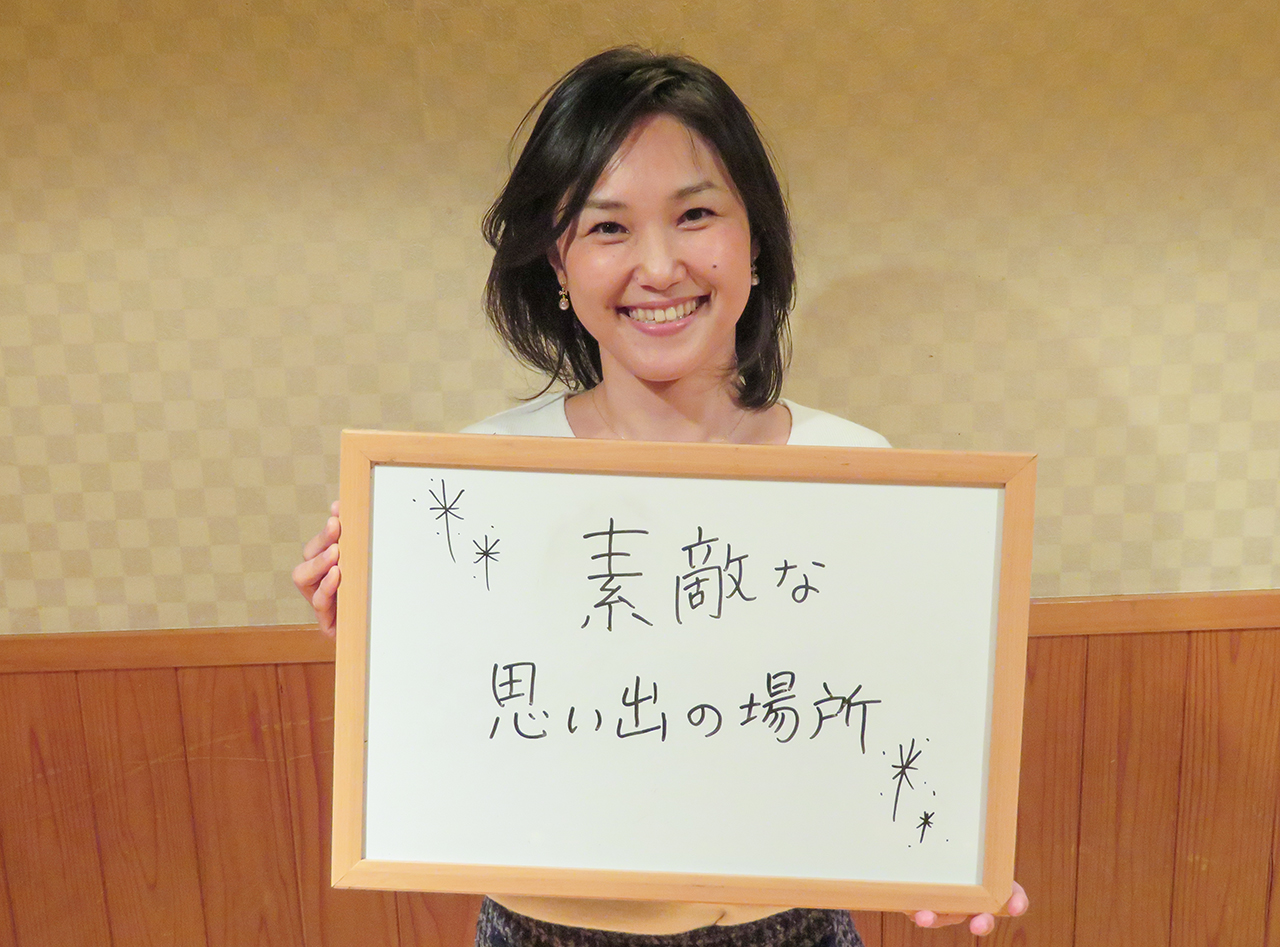 素敵な
思い出の場所